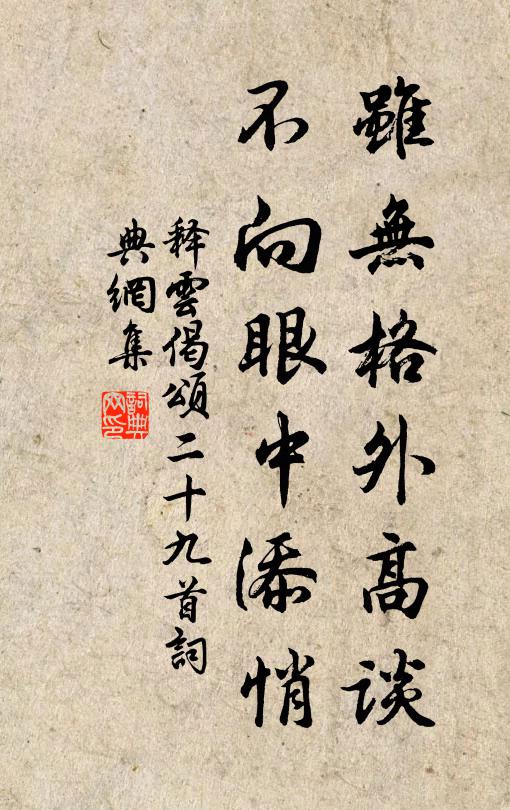 雖無格外高談
不向眼中添悄
释雲偈頌二十九首詞
典網集
詞典網印